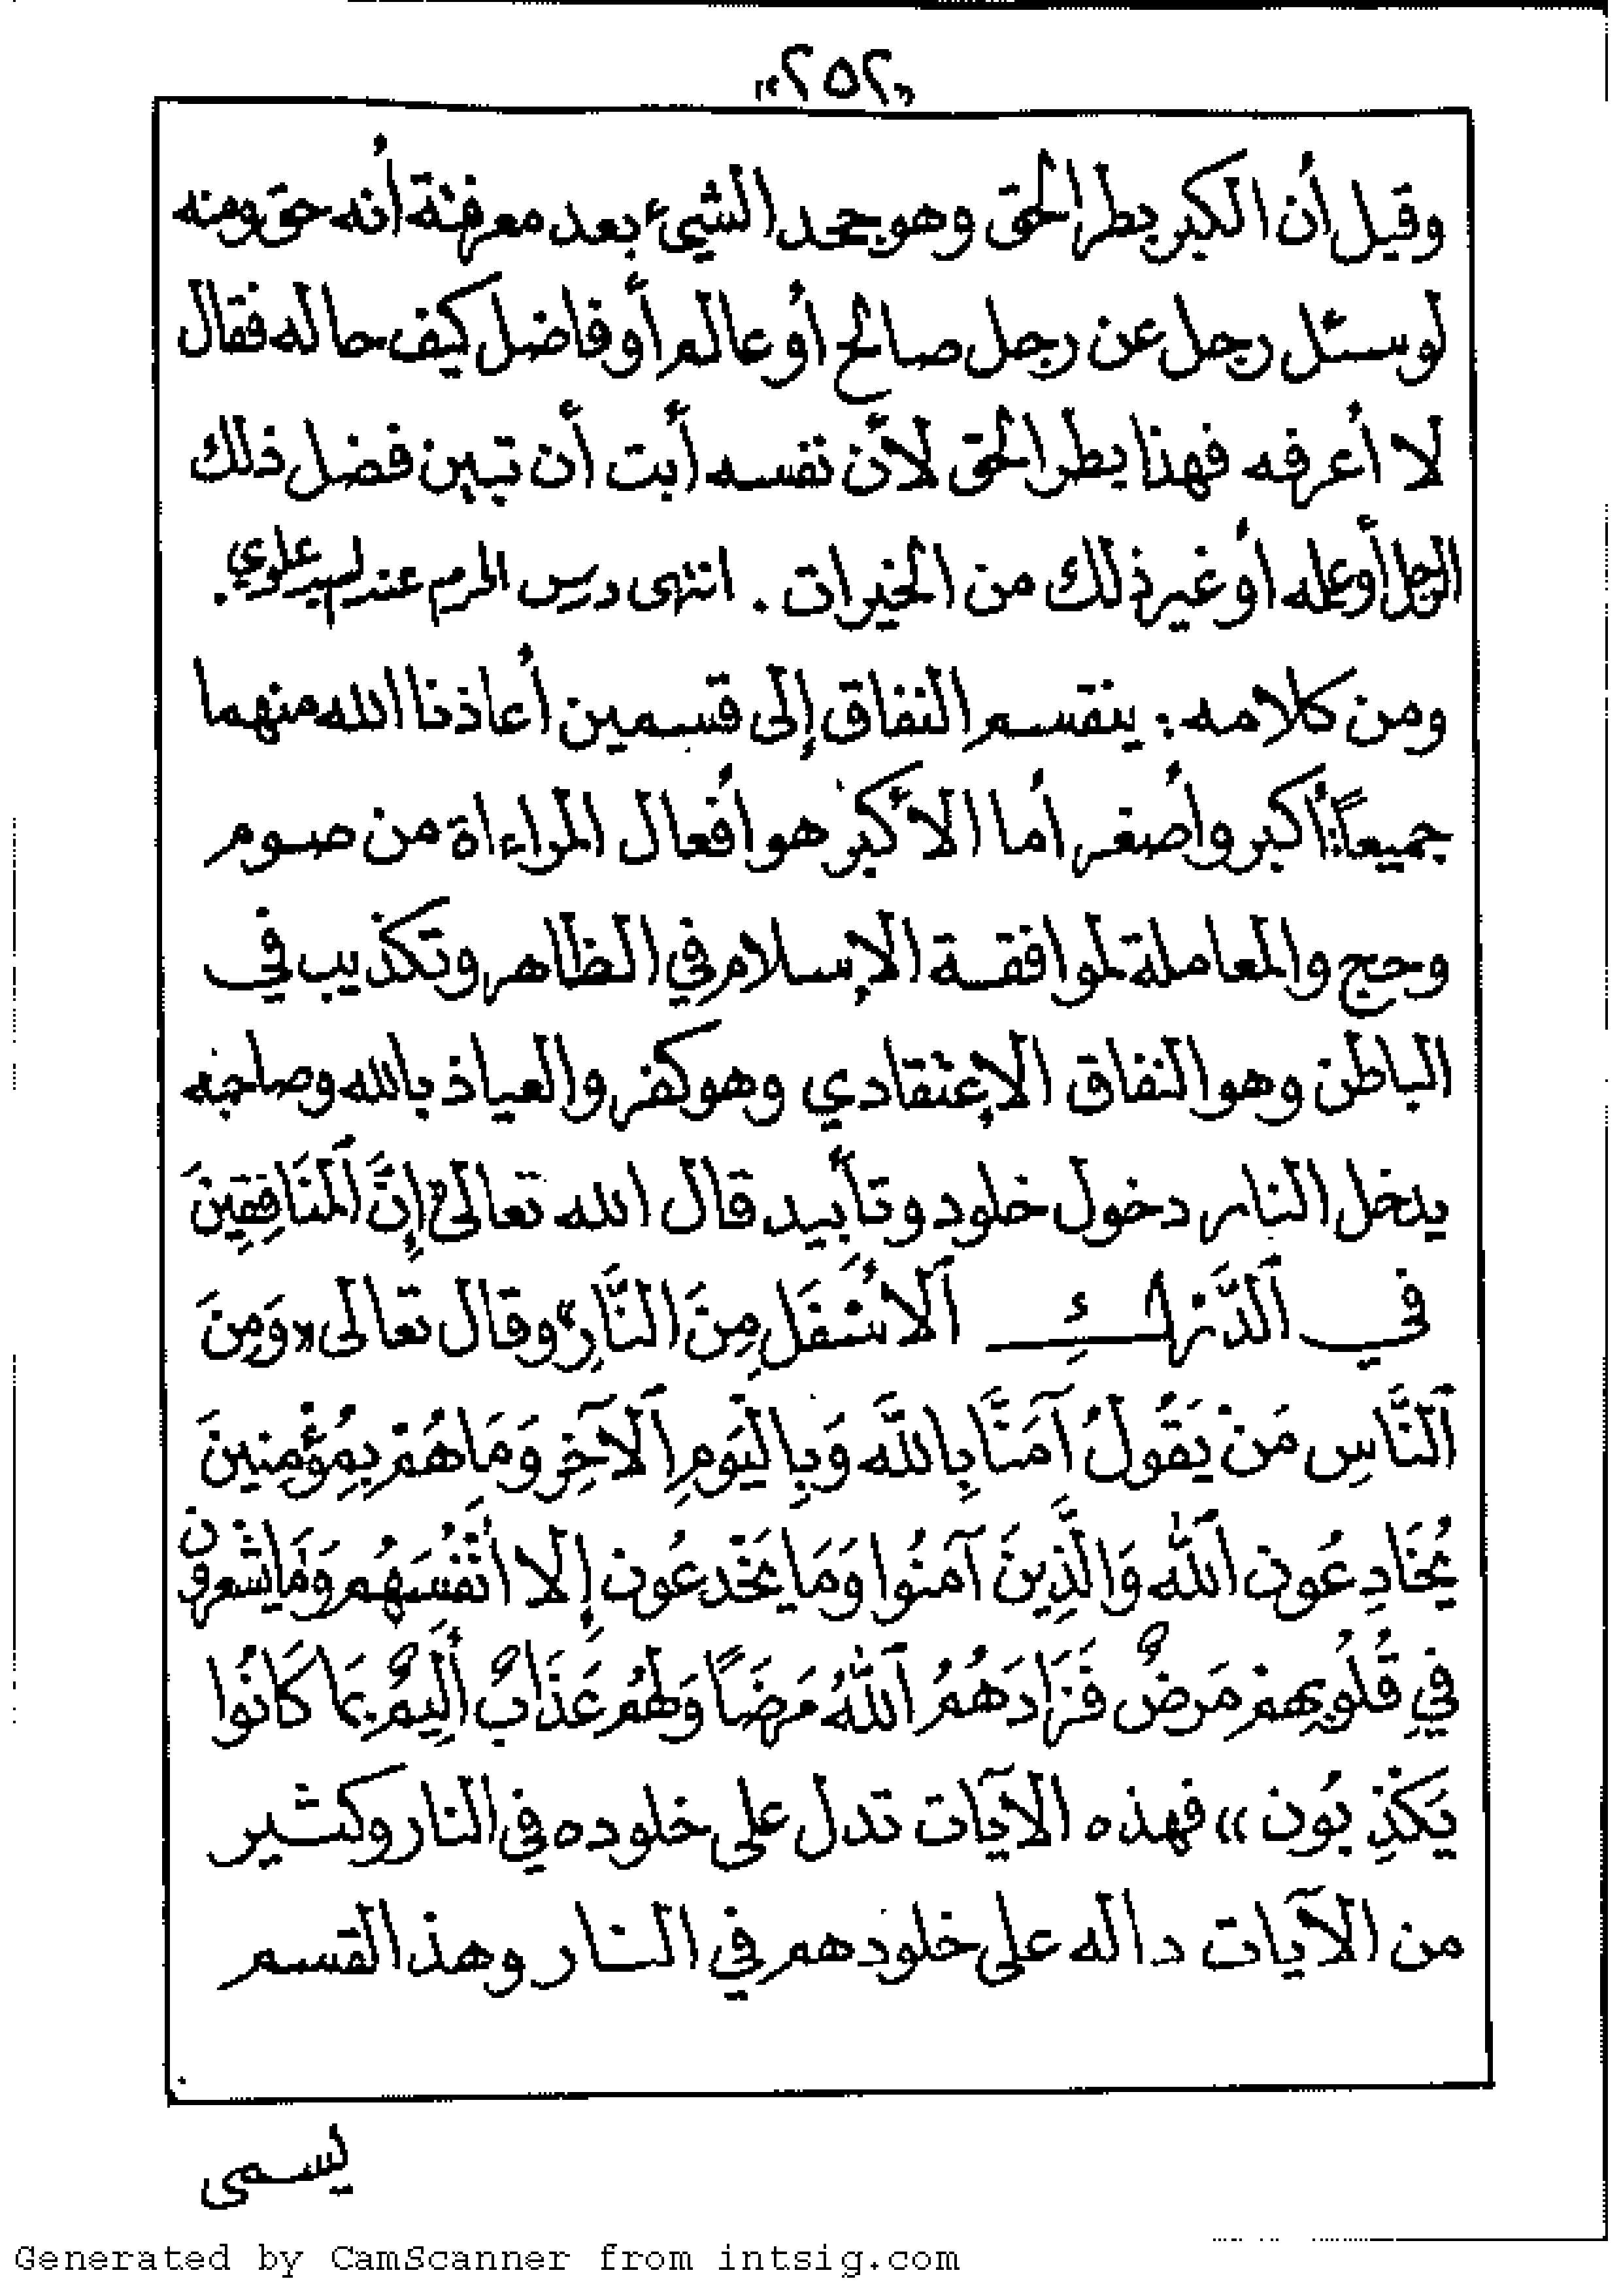 «٢٥٢»
وقيل أن الكبر بطر الحق وهو جحد الشيء بعد معرفتة أنه حق ومنه
لو سئل رجل عن رجل صالح أو عالم أو فاضل كيف حاله فقال
لا أعرفه فهذا بطر الحق لأن نفسه أبت أن تبين فضل ذلك
الرجل أو عمله أو غير ذلك من الخيرات . انتهى درس الحرم عند السيد علوي .
ومن كلامه : ينقسم النفاق إلى قسمين أعاذنا الله منهما
جميعاً : أكبر وأصغر أما الأكبر هو أفعال المراءاة من صوم
وحج والمعاملة لموافقة الإسلام في الظاهر وتكذيب في
الباطن وهو النفاق الإعتقادي وهو كفر والعياذ بالله وصاحبه
يدخل النار دخول خلود وتأبيد قال الله تعالى «إِنَّ الْمُنَافِقِينَ
في الدَّرْكِ الْأَسْفَلِ مِنَ النَّارِ» وقال تعالى «وَمِنَ
النَّاسِ مَنْ يَقُولُ آمَنَّا بِاللَّهِ وَبِالْيَوْمِ الْآخِرِ وَمَا هُمْ بِمُؤْمِنِينَ
يُخَادِعُونَ اللَّهَ وَالَّذِينَ آمَنُوا وَمَا يَخْدَعُونَ إِلَّا أَنْفُسَهُمْ وَمَا يَشْعُرُونَ
فِي قُلُوبِهِمْ مَرَضٌ فَزَادَهُمُ اللَّهُ مَرَضًا وَلَهُمْ عَذَابٌ أَلِيمٌ بِمَا كَانُوا
يَكْذِبُونَ» فهذه الآيات تدل على خلوده في النار وكثير
من الآيات داله على خلودهم في النار وهذا القسم
يسمى
Generated by CamScanner from intsig.com